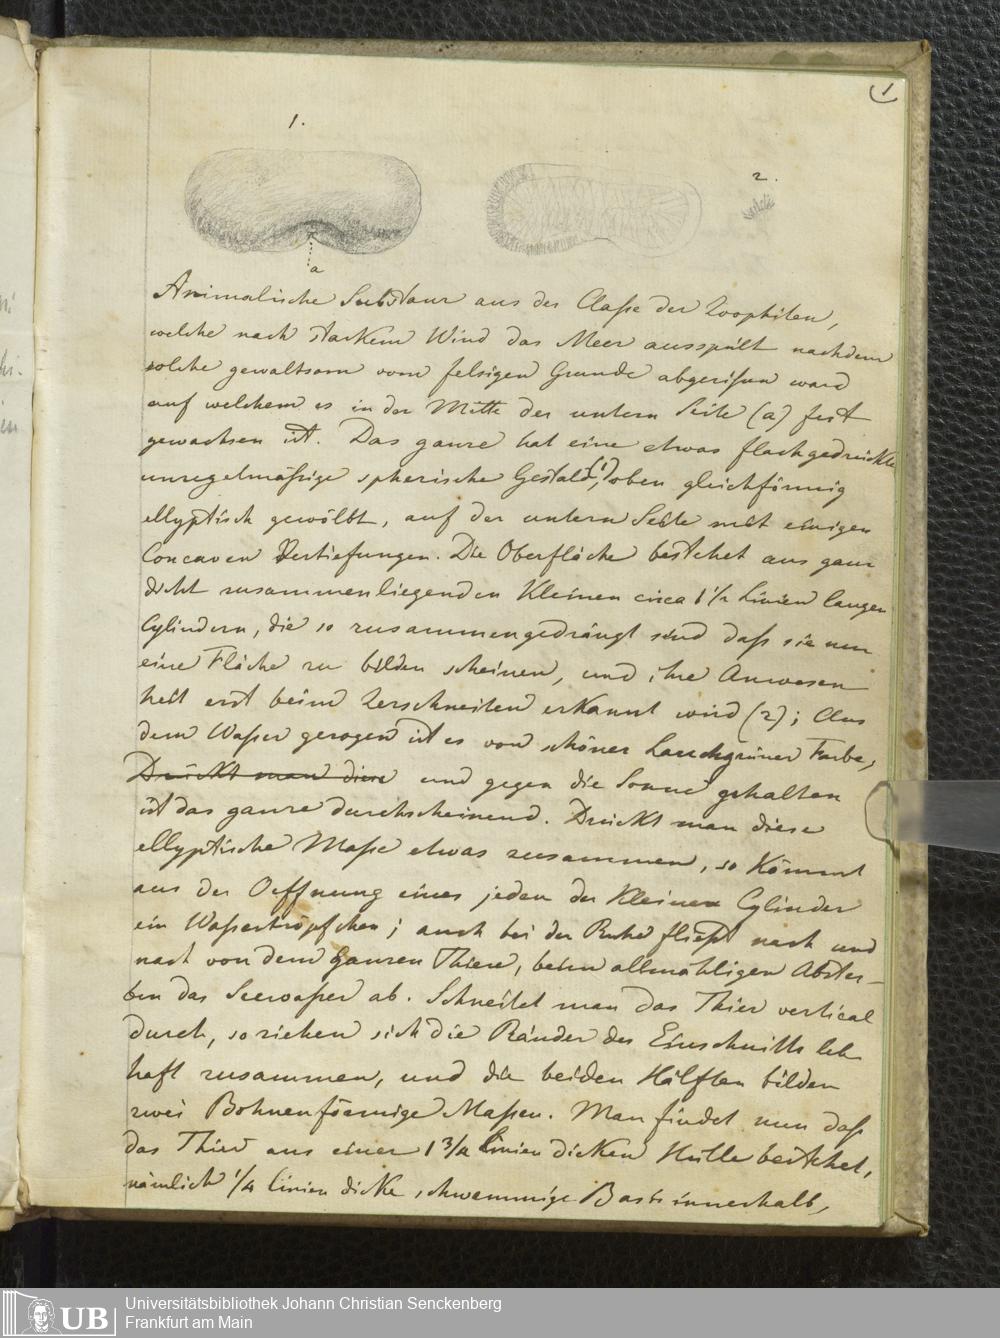 1
1.
2.
a
Animalische Substanz aus der Classe der Zoophiten,
welche nach starkem Wind das Meer ausspült nachdem
solche gewaltsam vom felsigen Grunde abgerissen ward
auf welchem es in der Mitte der untern Seite (a) fest
gewachsen ist. Das ganze hat eine etwas flachgedrückte
unregelmäßige spherische Gestald (1), oben gleichförmig
ellyptisch gewölbt, auf der untern Seite mit einigen
Concaven Vertiefungen. Die Oberfläche bestehet aus ganz
dicht zusammenliegenden Kleinen circa 1 1/2 Linien langen
Cylindern, die so zusammengedrängt sind daß sie nur
eine Fläche zu bilden scheinen, und ihre Anwesen
heit erst beim Zerschneiden erkannt wird (2); Aus
dem Wasser gezogen ist es von schöner Lauchgrüner Farbe,
Drückt man diese und gegen die Sonne gehalten
ist das ganze durchscheinend. Drückt man diese
ellyptische Masse etwas zusammen, so Kömmt
aus der Oeffnung eines jeden der Kleinen Cylinder
ein Wassertröpfchen; auch bei der Ruhe fließt nach und
nach von dem ganzen Thiere, beim allmähligen Abster-
ben das Seewasser ab. Schneidet man das Thier vertical
durch, so ziehen sich die Ränder des Einschnitts leb
haft zusammen, und die beiden Hälften bilden
zwei Bohnenförmige Massen. Man findet nun daß
das Thier aus einer 1 3/4 Linien dicken Hülle bestehet,
nämlich 1/4 Linien dicke schwammige Basis innerhalb,
UB
Universitätsbibliothek Johann Christian Senckenberg
Frankfurt am Main